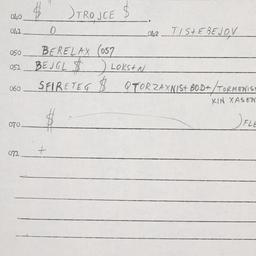 040 $ ) TROJCE $
042 0 042 TISTEBEJOV
050 BERELAX (057
052 BEJGL $ ) LOKSTN
060 SFIRETEG $ QTORZAXNIST BOD+/TORMENIS
XIN XASEN
070 $ ) FLE
072 +